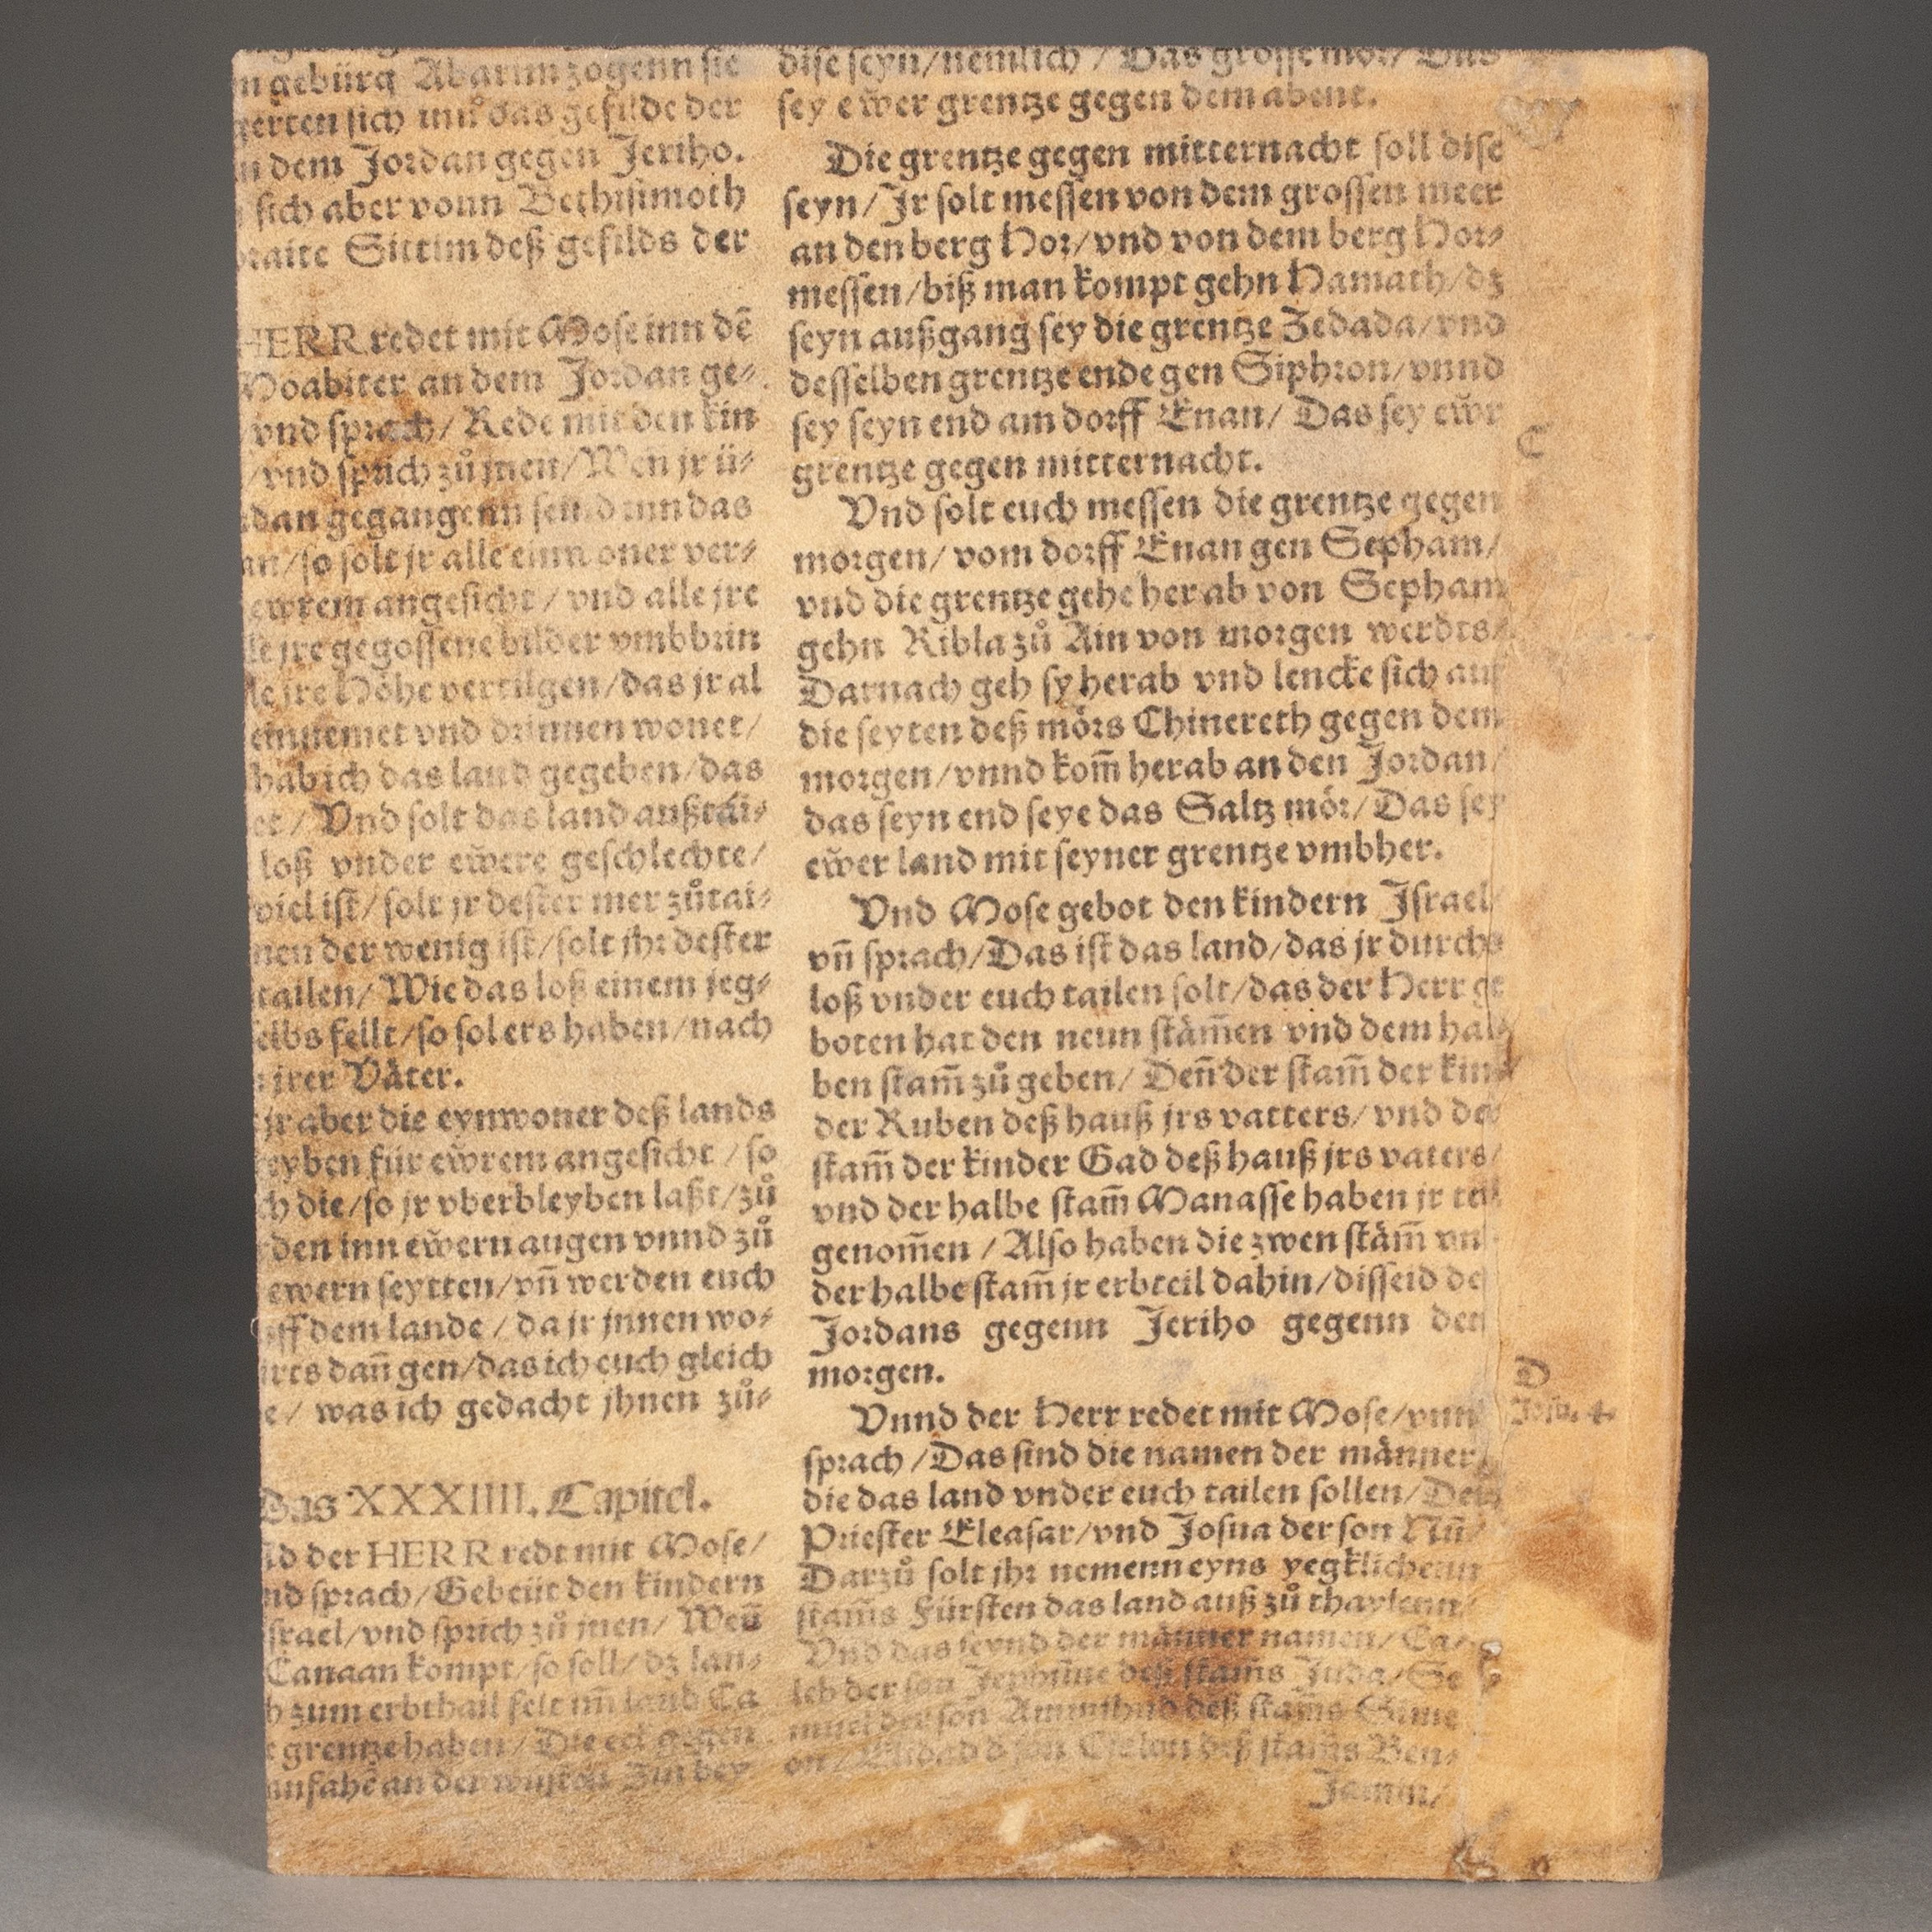 gebürg Abarim zogenn sie
sich das gefilde der
dem Jordan gegen Jeriho.
sich aber vonn Bethisimoth
Sittim deß gefilds der
HERR redet mit Mose inn dē
Moabiter an dem Jordan ge⸗
vnd sprach/ Rede mit den kin
/vnd sprich zů jnen/Wen jr ü⸗
dan gegangenn seind inn das
an/so solt jr alle einwoner ver⸗
ewrem angesicht/ vnd alle jre
le jre gegossene bilder vmbbrin
le jre Höhe vertilgen/das jr al
einnemet vnd drinnen wonet/
hab ich das land gegeben/das
et/ Vnd solt das land außtäi⸗
loß vnder ewere geschlechte/
viel ist/ solt jr dester mer zůtai⸗
nen der wenig ist/solt jhr dester
tailen/ Wie das loß einem jeg⸗
selbs fellt/so sol ers haben/nach
jrer Väter.
jr aber die eynwoner deß lands
eyben für ewrem angesicht/ so
ch die/so jr vberbleyben laßt/zů
den inn ewern augen vnnd zů
ewern seytten/vn̄ werden euch
uff dem lande/ da jr jnnen wo⸗
irts dan̄ gen/das ich euch gleich
e/ was ich gedacht jhnen zů⸗
Das XXXIIII. Capitel.
nd der HERR redt mit Mose/
nd sprach/Gebeüt den kindern
srael/vnd sprich zů jnen/ Wen̄
Canaan kompt/so soll/ dz lan⸗
h zum erbthail felt im̄ land Ca
grentze haben/ Die eck gegen
anfahē an der wüsten Zin bey
dise seyn/nemlich/ Das grosse mör/ Das
sey ewer grentze gegen dem abent.
Die grentze gegen mitternacht soll dise
seyn/Jr solt messen von dem grossen meer
an den berg Hor/vnd von dem berg Hor⸗
messen/biß man kompt gehn Hamath/dz
seyn außgang sey die grentze Zedada/vnd
desselben grentze ende gen Siphron/vnnd
sey seyn end am dorff Enan/ Das sey ewr
grentze gegen mitternacht.
C
Vnd solt euch messen die grentze gegen
morgen/ vom dorff Enan gen Sepham/
vnd die grentze gehe herab von Sepham
gehn Ribla zů Ain von morgen werdts/
Darnach geh sy herab vnd lencke sich auf
die seyten deß mörs Chinereth gegen dem
morgen/vnnd kom̄ herab an den Jordan/
das seyn end seye das Saltz mör/Das sey
ewer land mit seyner grentze vmbher.
Vnd Mose gebot den kindern Jsrael/
vn̄ sprach/Das ist das land/das jr durchs
loß vnder euch tailen solt/das der Herr ge
boten hat den neun stäm̄en vnd dem hal
ben stam̄ zů geben/ Den̄ der stam̄ der kin
der Ruben deß hauß jrs vatters/ vnd der
stam̄ der kinder Gad deß hauß jrs vaters/
vnd der halbe stam̄ Manasse haben jr teil
genom̄en/Also haben die zwen stäm̄ vn
der halbe stam̄ jr erbteil dahin/disseid des
Jordans gegenn Jeriho gegenn den
morgen.
D
Josu. 4.
Vnnd der Herr redet mit Mose/vnn
sprach/Das sind die namen der männer/
die das land vnder euch tailen sollen/Der
Priester Eleasar/vnd Josua der son Nun̄/
Darzů solt jhr nemenn eyns yegklichenn
stam̄s Fürsten das land auß zů thaylenn/
Vnd das seynd der männer namen/ Ca⸗
leb der son Jephunne deß stam̄s Juda/Se
muel der son Ammihud deß stam̄s Sime
on/ Elidad d son Cislon deß stam̄s Ben⸗
Jamin/